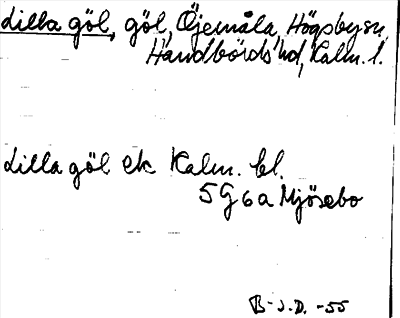 Lilla göl, göl, Öjemåla, Högsby sn,
Handbörds hd, Kalm. l.
Lilla göl ek Kalm. bl.
5G6a Mjösebo
B-J.D. -55